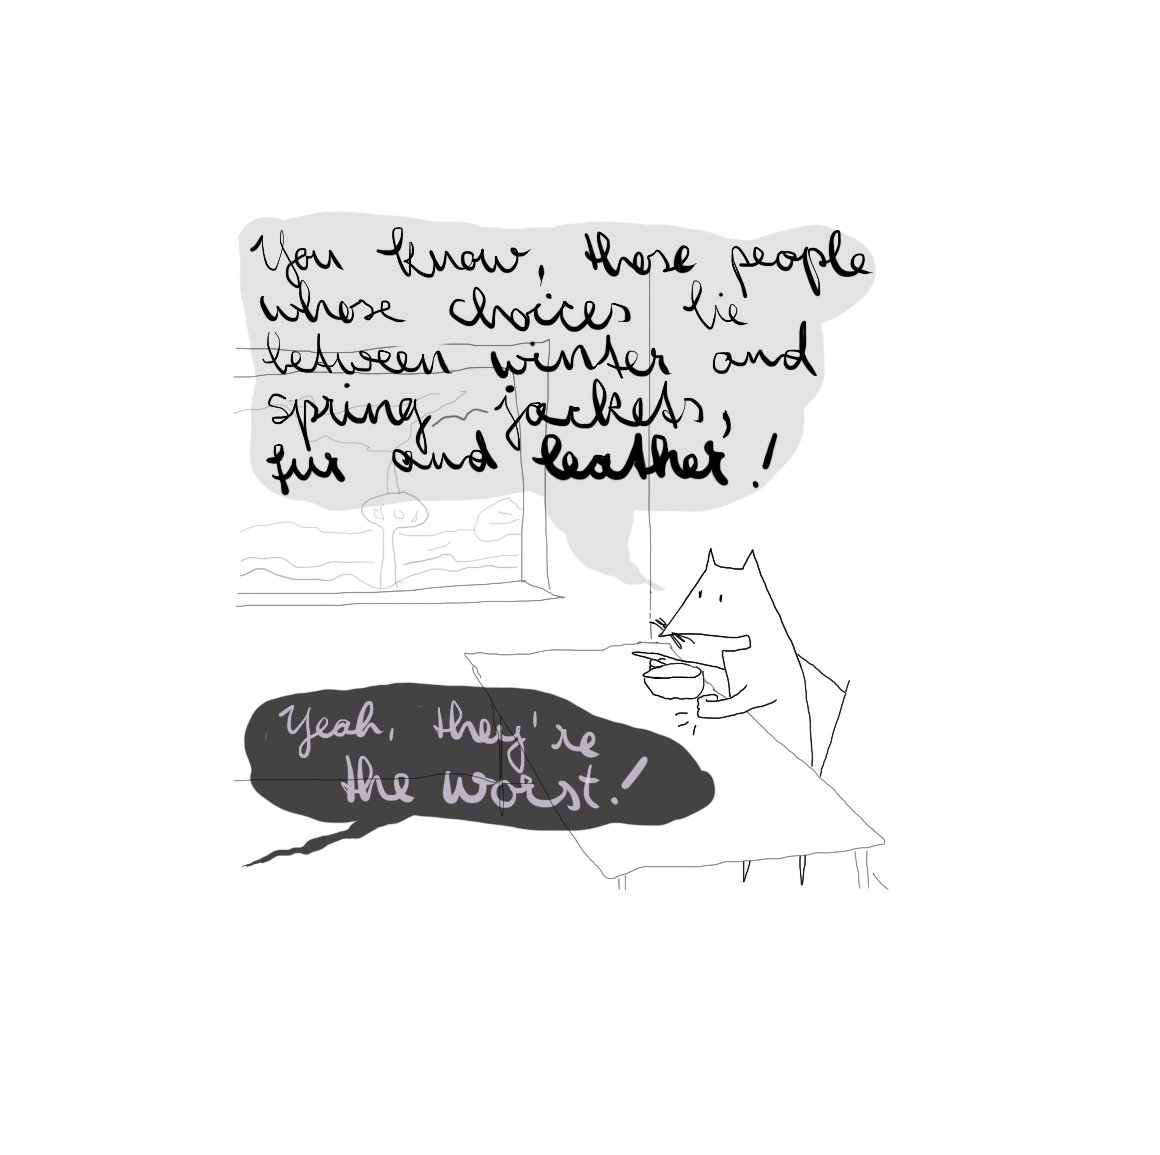 You know, those people
whose choices lie
between winter and
spring jackets,
fur and leather!
Yeah, they're
the worst!